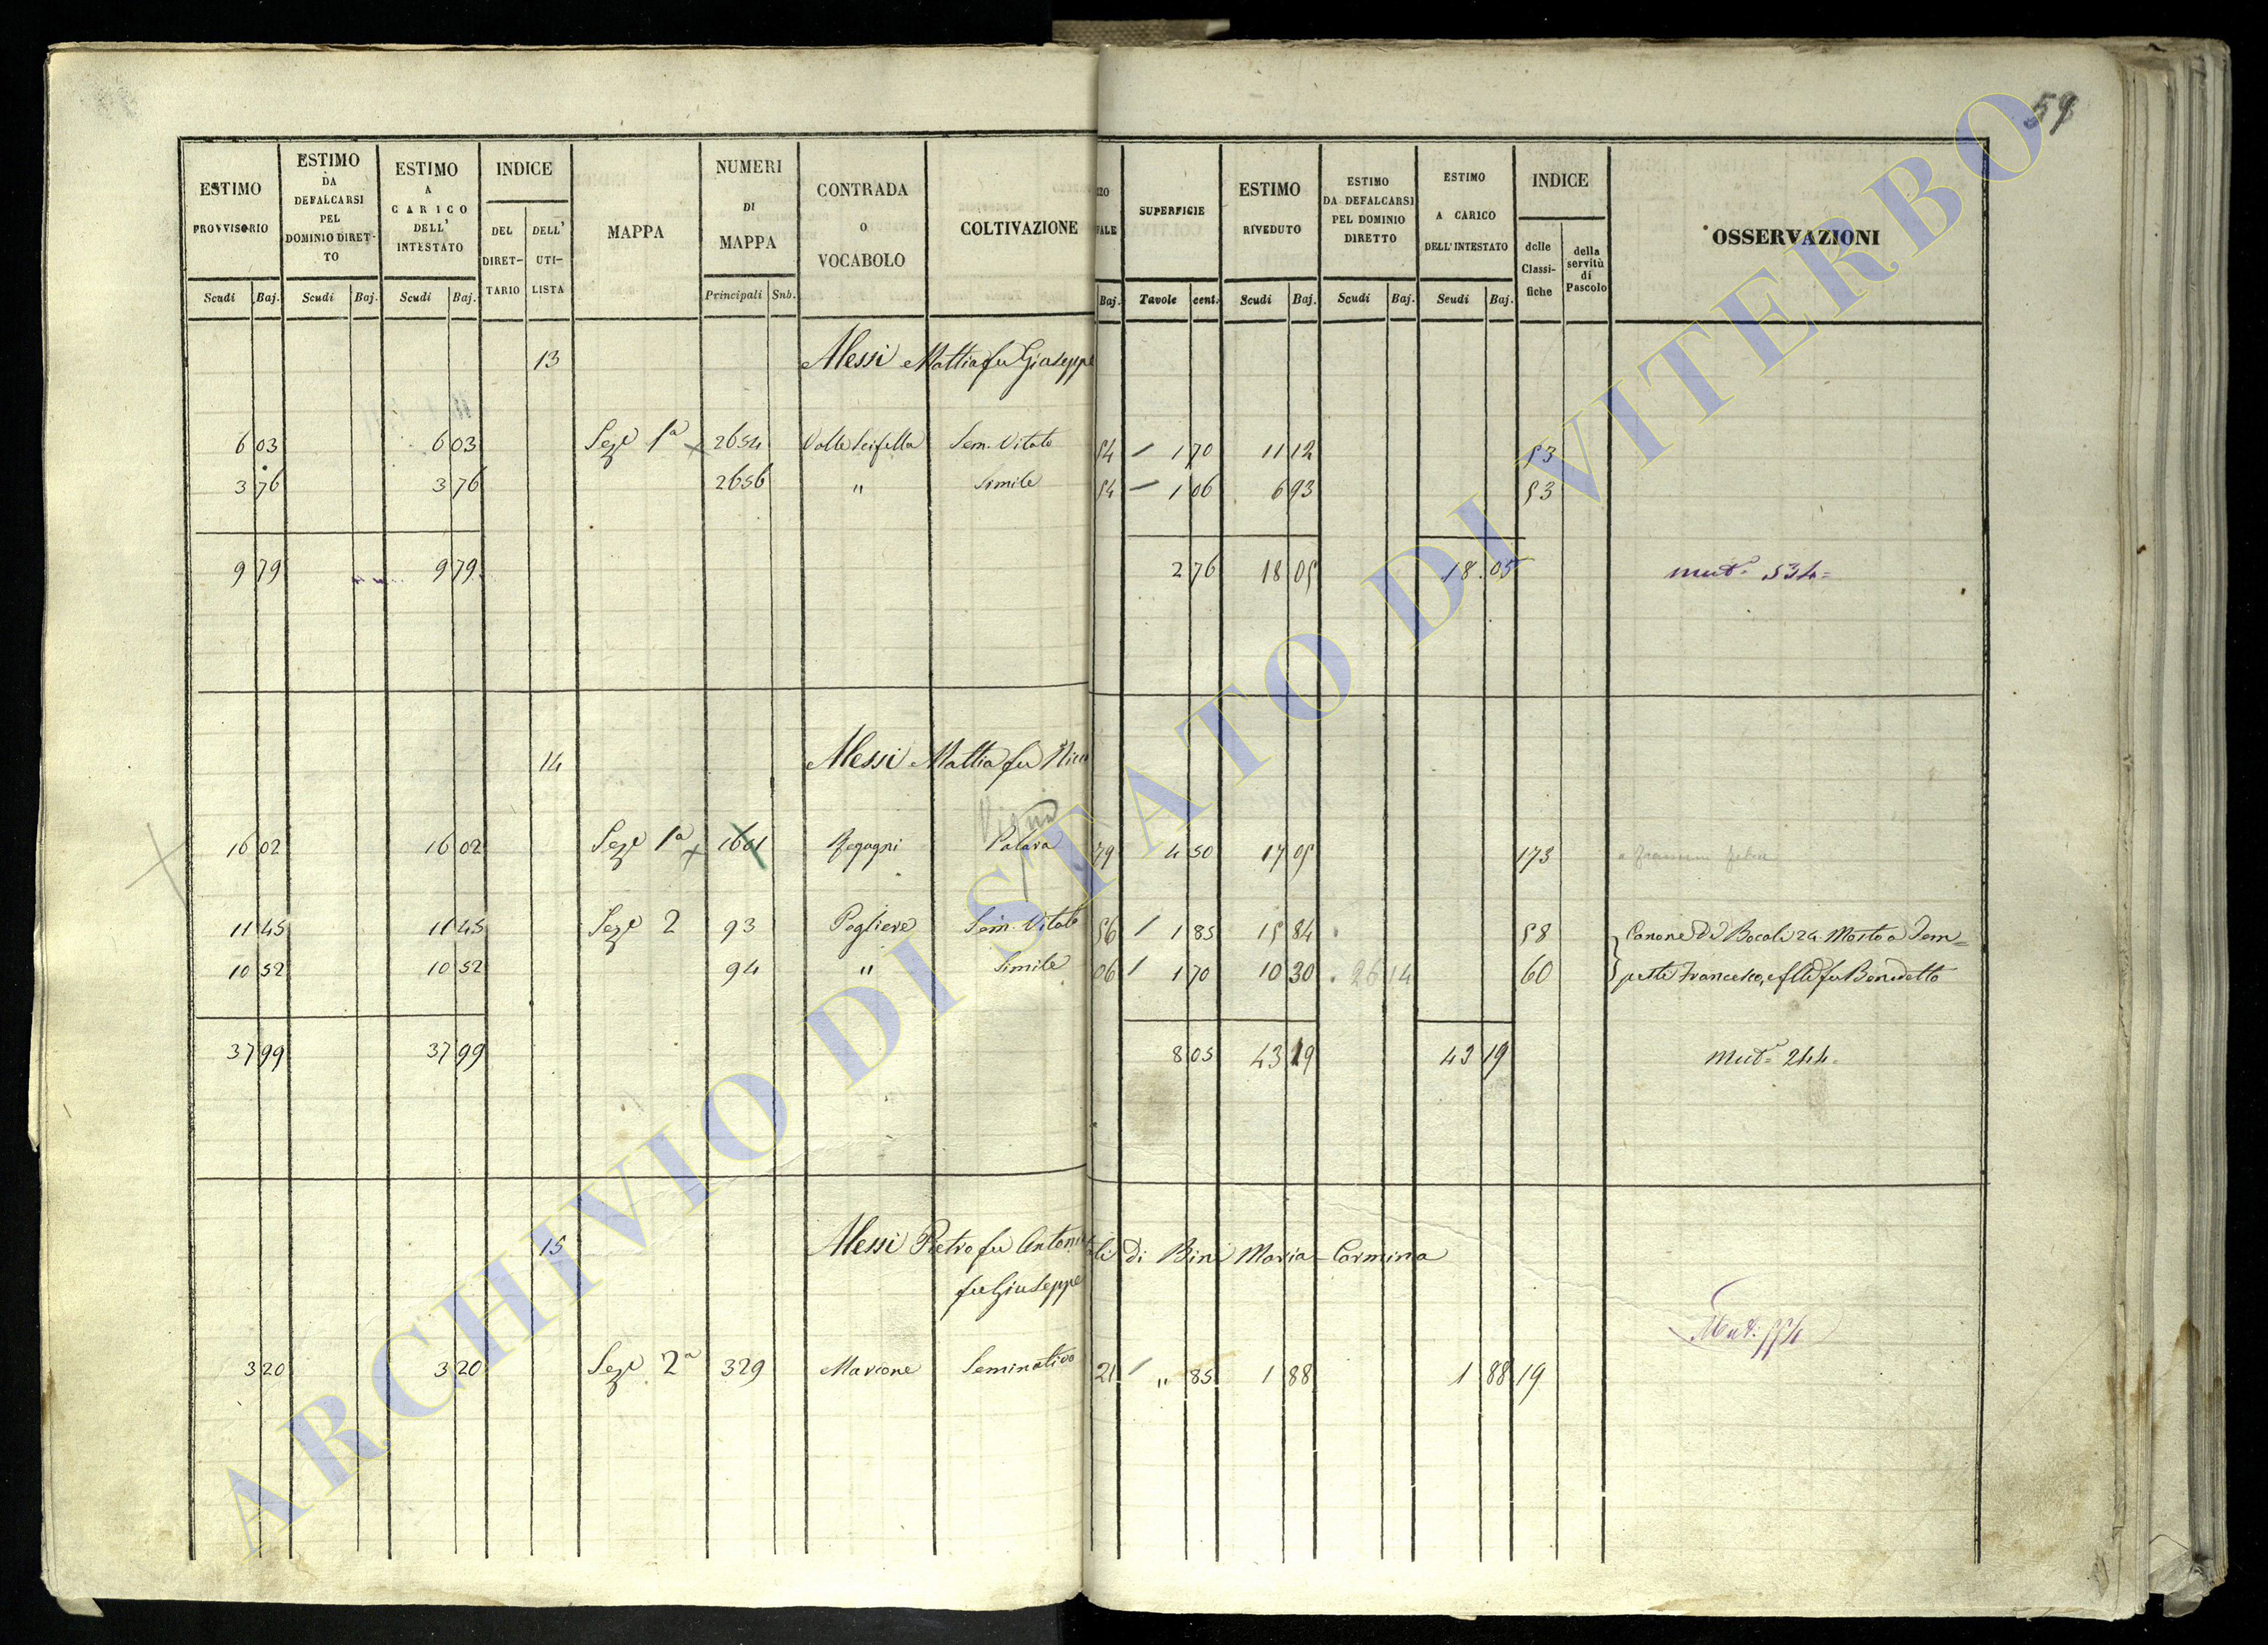 59
ESTIMO PROVVISORIO
ESTIMO DA DEFALCARSI PEL DOMINIO DIRET-TO
ESTIMO A CARICO DELL' INTESTATO
INDICE
DEL DIRET-TARIO
DELL' UTI-LISTA
MAPPA
NUMERI DI MAPPA
CONTRADA O VOCABOLO
COLTIVAZIONE
SUPERFICIE
ESTIMO RIVEDUTO
ESTIMO DA DEFALCARSI PEL DOMINIO DIRETTO
ESTIMO A CARICO DELL' INTESTATO
INDICE
delle Classi-fiche
della servitù di Pascolo
OSSERVAZIONI
Scudi Baj. Scudi Baj. Scudi Baj. Principali Sub. Baj. Tavole cent. Scudi Baj. Scudi Baj. Scudi Baj.
13 Alessi Mattia fu Giuseppe
6 03 6 03 Sez.e 1a 2654 Valle Scifella Sem. Vitato 54 1 70 11 12 53
3 76 3 76 2656 " Simile 54 1 06 6 93 53
9 79 9 79 2 76 18 05 18.05 mut.e 534=
14 Alessi Mattia fu
Vigna
16 02 16 02 Sez.e 1a 1661 79 4 50 17 05 173
11 45 11 45 Sez.e 2 93 Pogliere Sem. Vitato 56 1 85 15 84 58 Canone di Bocali 24 Mosto a Tem=
10 52 10 52 94 " Simile 06 1 70 10 30 26 14 60 peste Francesco, e flli fu Benedetto
37 99 37 99 8 05 43 19 43 19 mut.e 244=
15 Alessi Pietro fu di Bini Maria Carmina
fu Giuseppe
3 20 3 20 Sez.e 2a 329 Marione Seminativo 21 " 85 1 88 1 88 19
ARCHIVIO DI STATO DI VITERBO